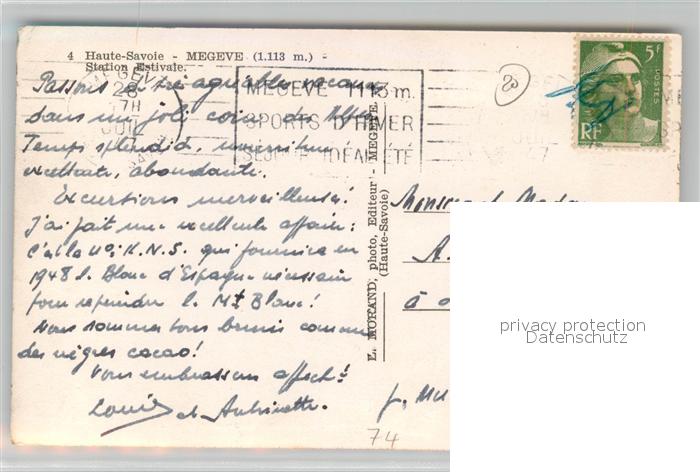 4 Haute-Savoie - MEGEVE (1.113 m.) -
Station Estivale.
MEGEVE
28
17H
JUIL
MEGEVE 1113 m.
SPORTS D'HIVER
SÉJOUR IDÉAL ÉTÉ
5F
POSTES
RF
Passons de très agréables vacances
dans un joli coin des Alpes
Temps splendide, nourriture
excellente, abondante.
Excursions merveilleuses!
J'ai fait une excellente affaire:
c'est la qui fournira en
1948 l. Blanc d'Espagne nécessaire
pour repeindre le Mt Blanc!
Nous sommes tous brunis comme
des nègres cacao!
Vous embrassons affectt
Louis et Antoinette.
E. MORAND, photo, Editeur - MEGEVE
(Haute-Savoie)
Monsieur et Madame
A.
à
74
privacy protection
Datenschutz